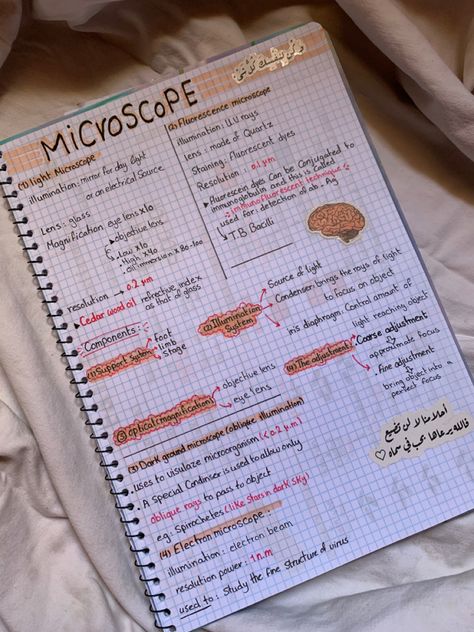 MiCroscoPE
وكن لنفسك كل شيء
(1) light Microscope
illumination: mirror for day light
or an electrical source
Lens: glass
Magnification: eye lens x10
objective lens
Low x10
High x40
oil immersion x 80-100
resolution → 0.2 µm
Cedar wood oil refrective index
as that of glass
(2) Fluorescence microscope
illumination: U.V rays
Lens: made of Quartz
Staining: Fluorescent dyes
Resolution: 0.1 µm
Fluorescein dyes can be Conjugated to
immunoglobulin and this is called
"immunofluorescent technique"
used for: detection of ab - Ag
T.B. Bacilli
Components:
(1) Support system
foot
limb
stage
(2) illumination System
Source of light
Condenser brings the rays of light
to focus on object
iris diaphragm: Control amount of
light reaching object
(3) optical magnification
objective lens
eye lens
(4) The adjustment
Coarse adjustment
approximate focus
Fine adjustment
bring object into a
perfect focus
(3) Dark ground microscope (oblique illumination)
. uses to visulaze microorganism (< 0.2 µm)
. A special Condinser is used to allow only
oblique rays to pass to object
eg: Spirochetes (like stars in dark sky)
(4) Electron microscope.
illumination: electron beam
resolution power: 1 n.m
used to: Study the fine structure of virus
أحلامنا لا لن تضيع
فالله يرعاها بحب في سماه